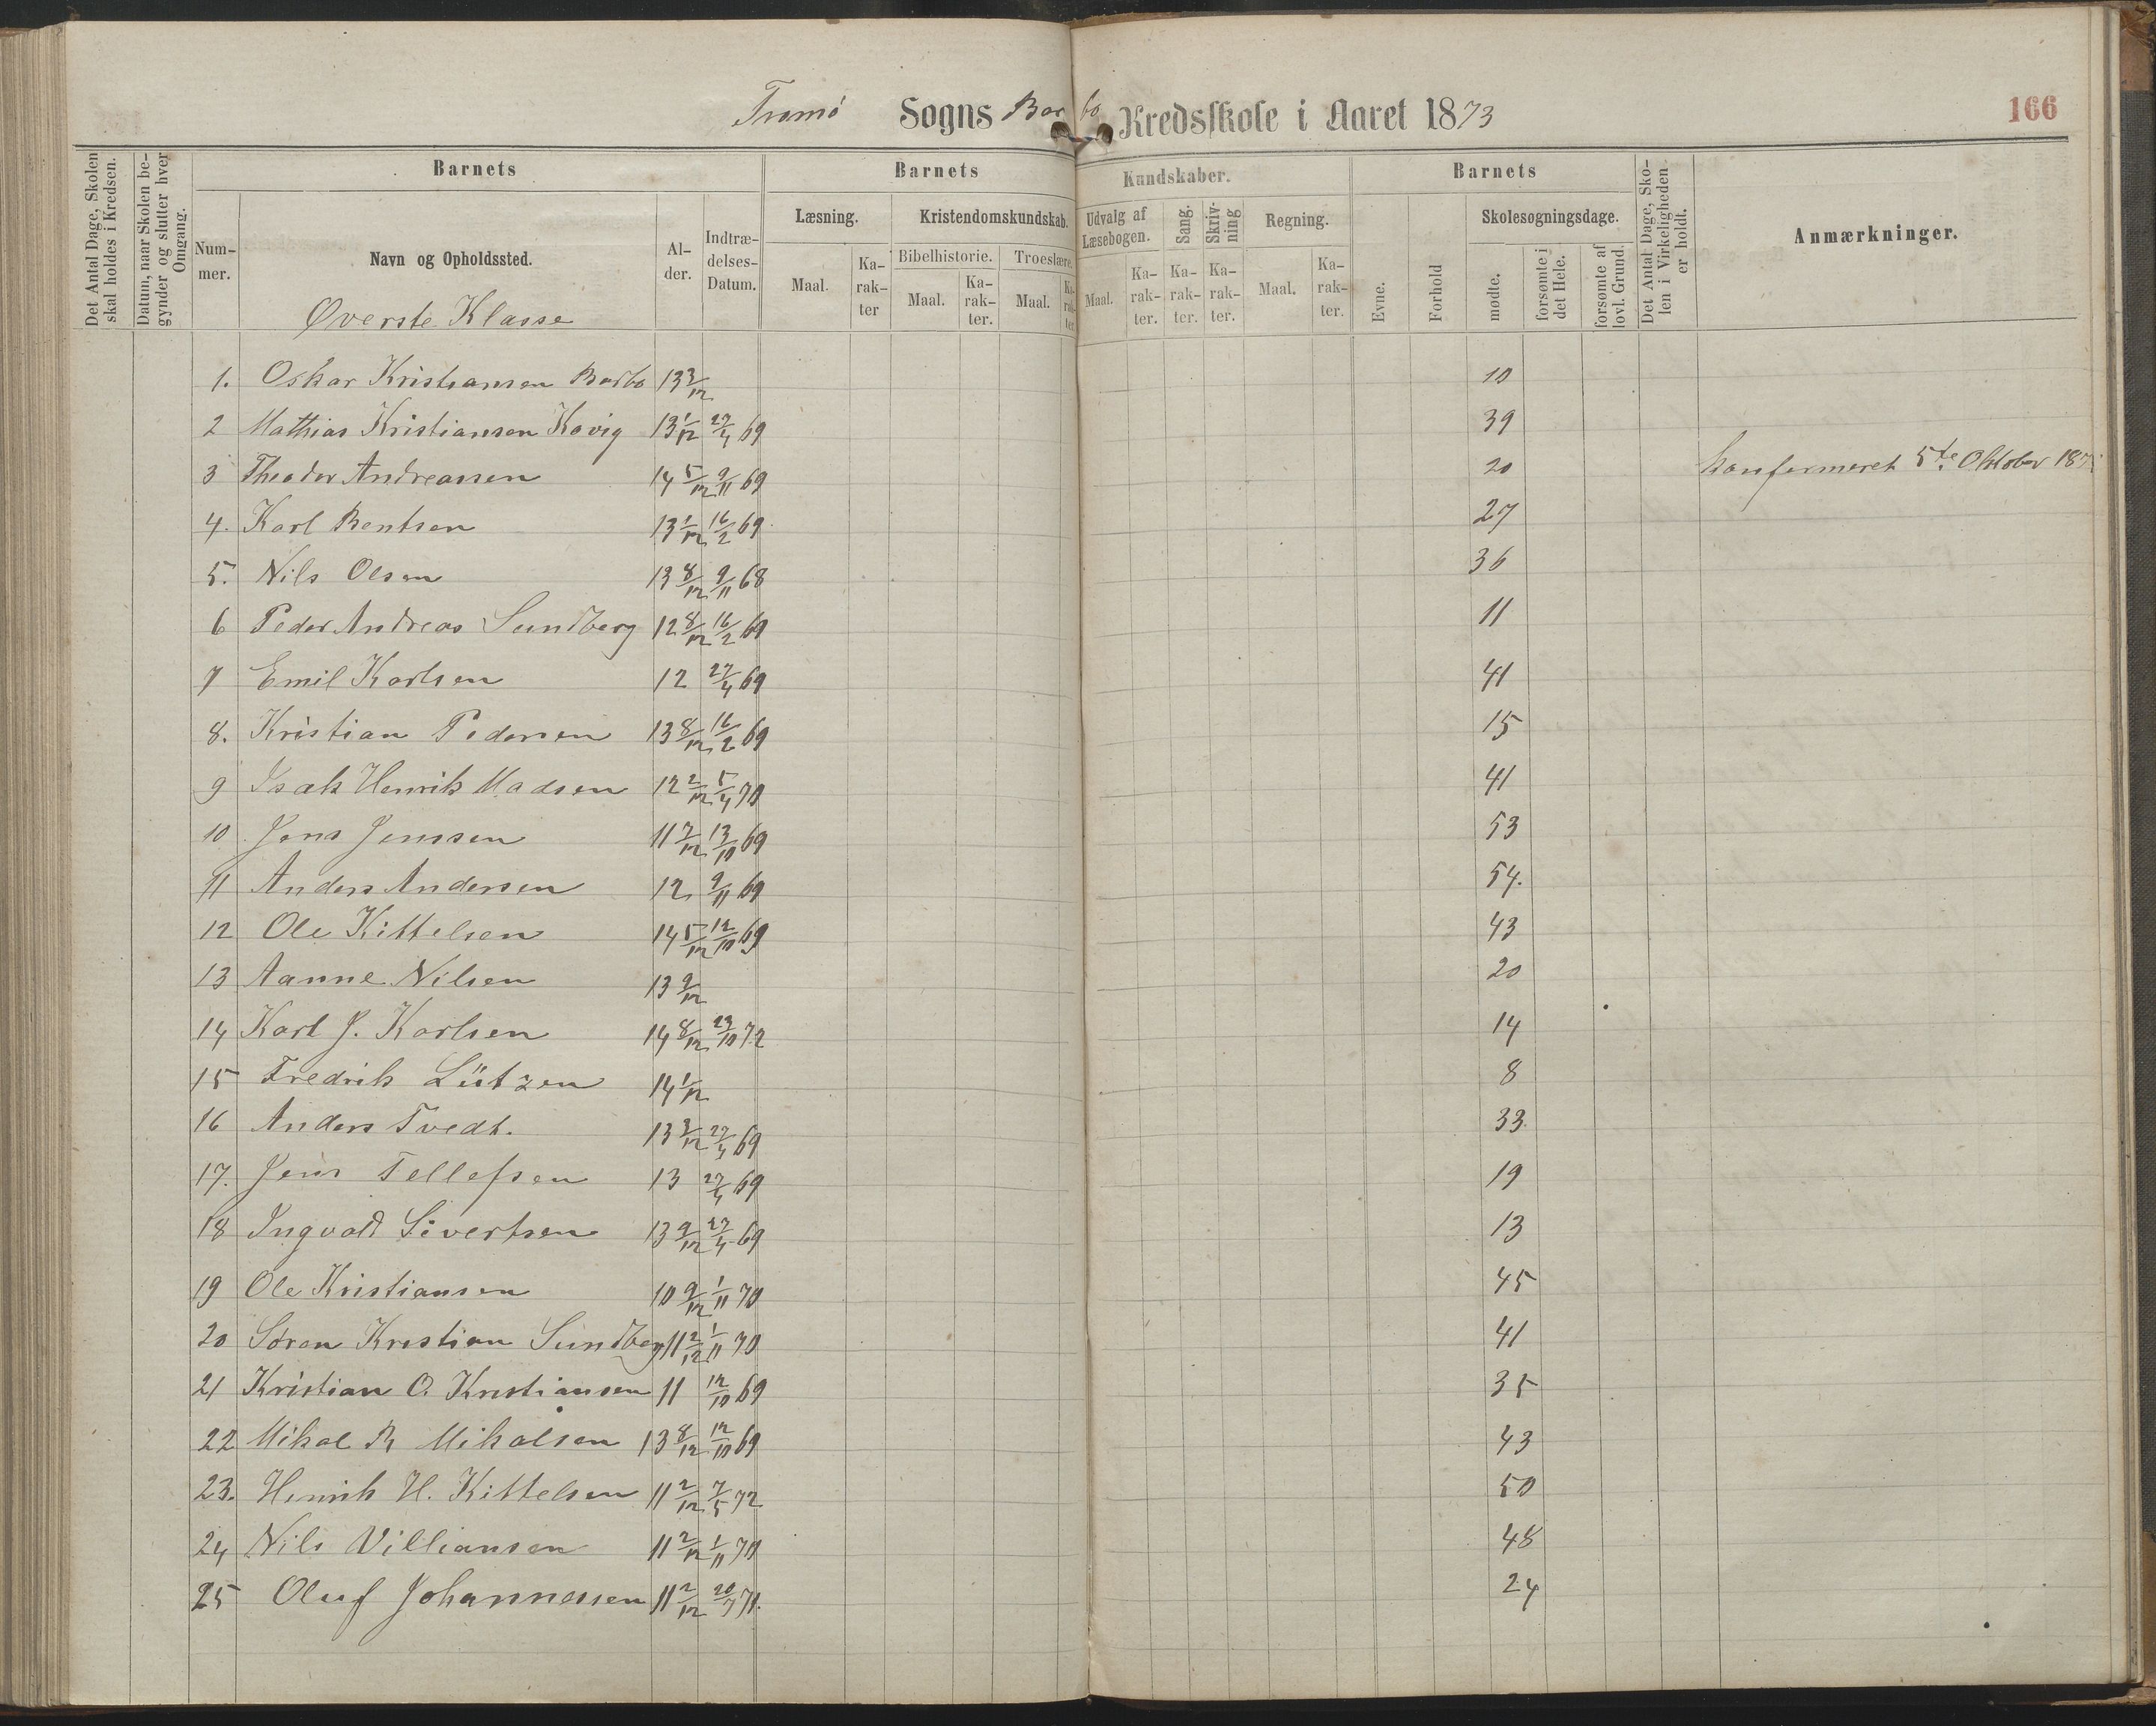 Tromø Sogns Barbo Kredsskole i Aaret 1873
166
Det Antal Dage, Skolen skal holdes i Kredsen.
Datum, naar Skolen begynder og slutter hver Omgang.
Barnets
Nummer.
Navn og Opholdssted.
Alder.
Indtrædelses-Datum.
Barnets Kundskaber.
Læsning.
Maal.
Karakter
Kristendomskundskab.
Bibelhistorie.
Maal.
Karakter.
Troeslære.
Maal.
Karakter
Udvalg af Læsebogen.
Maal.
Karakter.
Sang.
Karakter.
Skrivning
Karakter.
Regning.
Maal.
Karakter.
Barnets
Evne.
Forhold
Skolesøgningsdage.
mødte.
forsømte i det Hele.
forsømte af lovl. Grund.
Det Antal Dage, Skolen i Virkeligheden er holdt.
Anmærkninger.
Øverste Klasse
1. Oskar Kristiansen Barbo 13 3/12 10
2 Mathias Kristiansen Kovig 13 1/12 27/4 69 39
3 Theodor Andreassen 14 5/12 9/11 69 20 Konfermeret 5te Oktober 187
4. Karl Bentsen 13 1/12 16/2 69 27
5. Nils Olsen 13 8/12 9/11 68 36
6 Peder Andreas Sundberg 12 8/12 16/2 69 11
7 Emil Karlsen 12 27/4 69 41
8. Kristian Pedersen 13 8/12 16/2 69 15
9 Isak Henrik Madsen 12 2/12 5/4 70 41
10 Jens Jenssen 11 7/12 13/10 69 53
11 Anders Andersen 12 9/11 69 54.
12 Ole Kittelsen 14 5/12 12/10 69 43
13 Aanne Nilsen 13 9/12 20
14 Karl J. Karlsen 14 8/12 23/10 72 14
15 Fredrik Lützen 14 1/12 8
16 Anders Tvedt. 13 3/12 27/4 69 33.
17. Jens Tellefsen 13 27/4 69 19
18 Ingvald Sivertsen 13 9/12 27/4 69 13
19 Ole Kristiansen 10 9/12 1/11 70 45
20 Søren Kristian Sundberg 11 2/12 1/11 70 41
21 Kristian O. Kristiansen 11 12/10 69 35
22 Mikal B Mikalsen 13 8/12 12/10 69 43
23. Henrik H. Kittelsen 11 2/12 7/5 72 50
24 Nils Villiamsen 11 2/12 1/11 70 48
25 Oluf Johannessen 11 2/12 20/7 71. 24